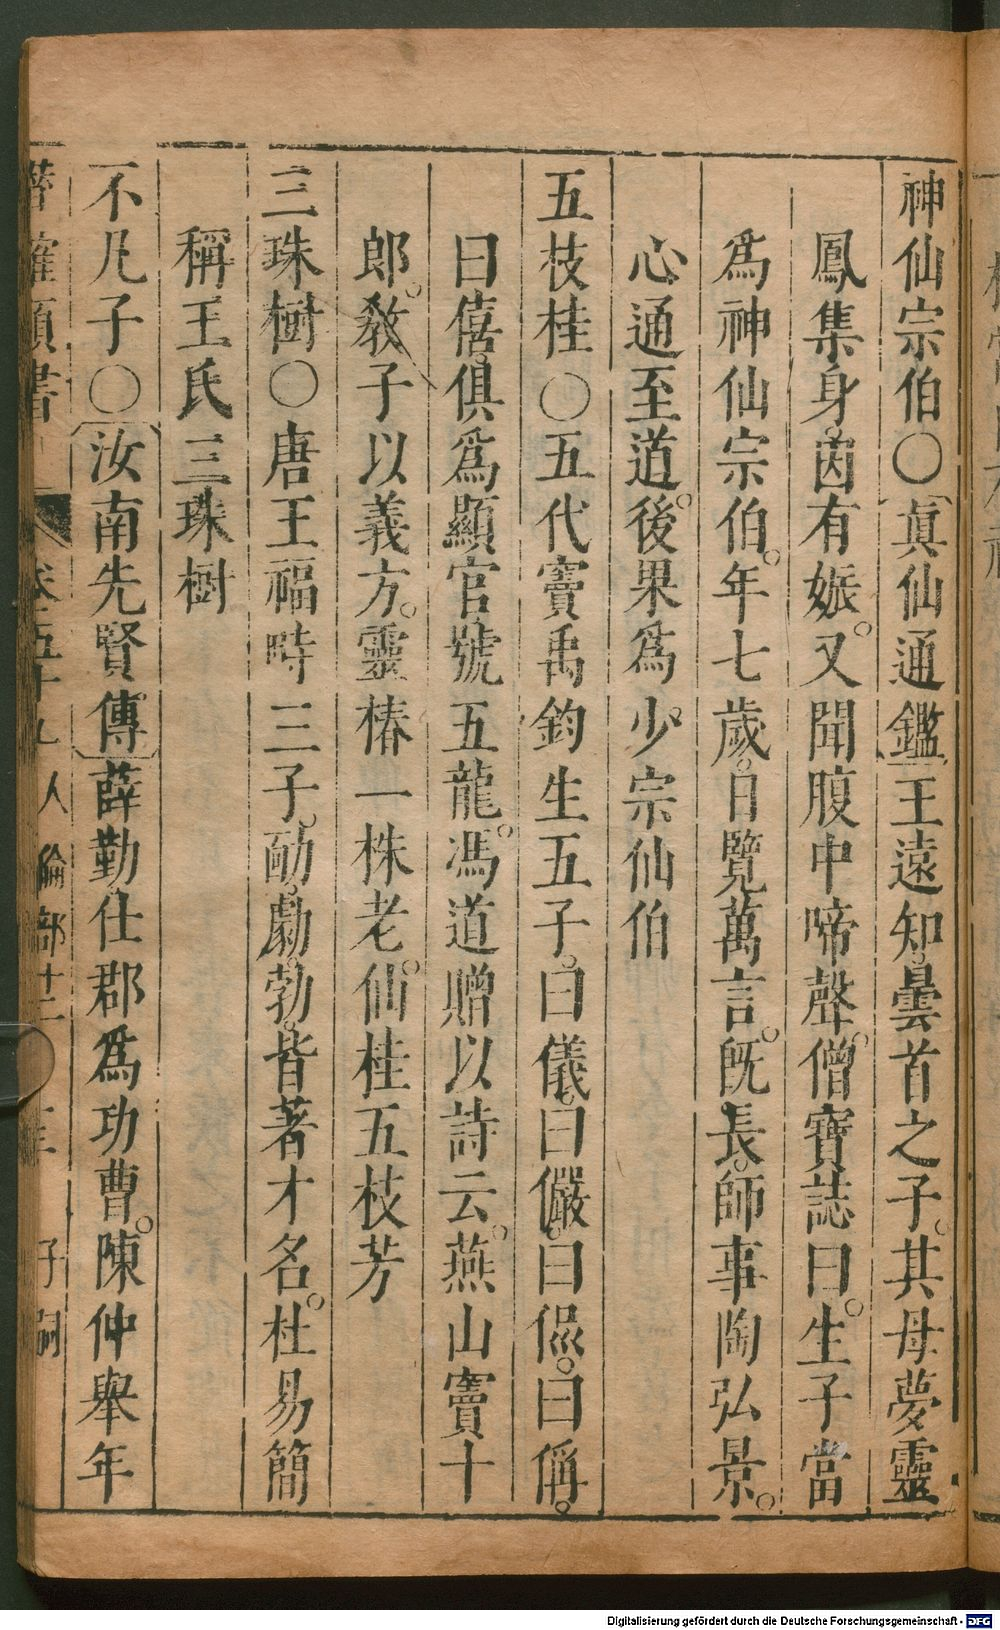 神仙宗伯○眞仙通鑑王遠知。曇首之子。其母夢靈
鳳集身。因有娠。又聞腹中啼聲。僧寶誌曰。生子當
爲神仙宗伯。年七歲。日覽萬言。旣長。師事陶弘景。
心通至道。後果爲少宗仙伯
五枝桂○五代竇禹鈞生五子。曰儀。曰儼。曰侃。曰偁。
曰僖。俱爲顯官。號五龍。馮道贈以詩云。燕山竇十
郎。敎子以義方。靈椿一株老。仙桂五枝芳
三珠樹○唐王福畤三子。勔。勮。勃。皆著才名。杜易簡
稱王氏三珠樹
不凡子○汝南先賢傳薛勤仕郡爲功曹。陳仲舉年
潛確類書 卷五十 人倫部十二 子嗣
Digitalisierung gefördert durch die Deutsche Forschungsgemeinschaft - DFG